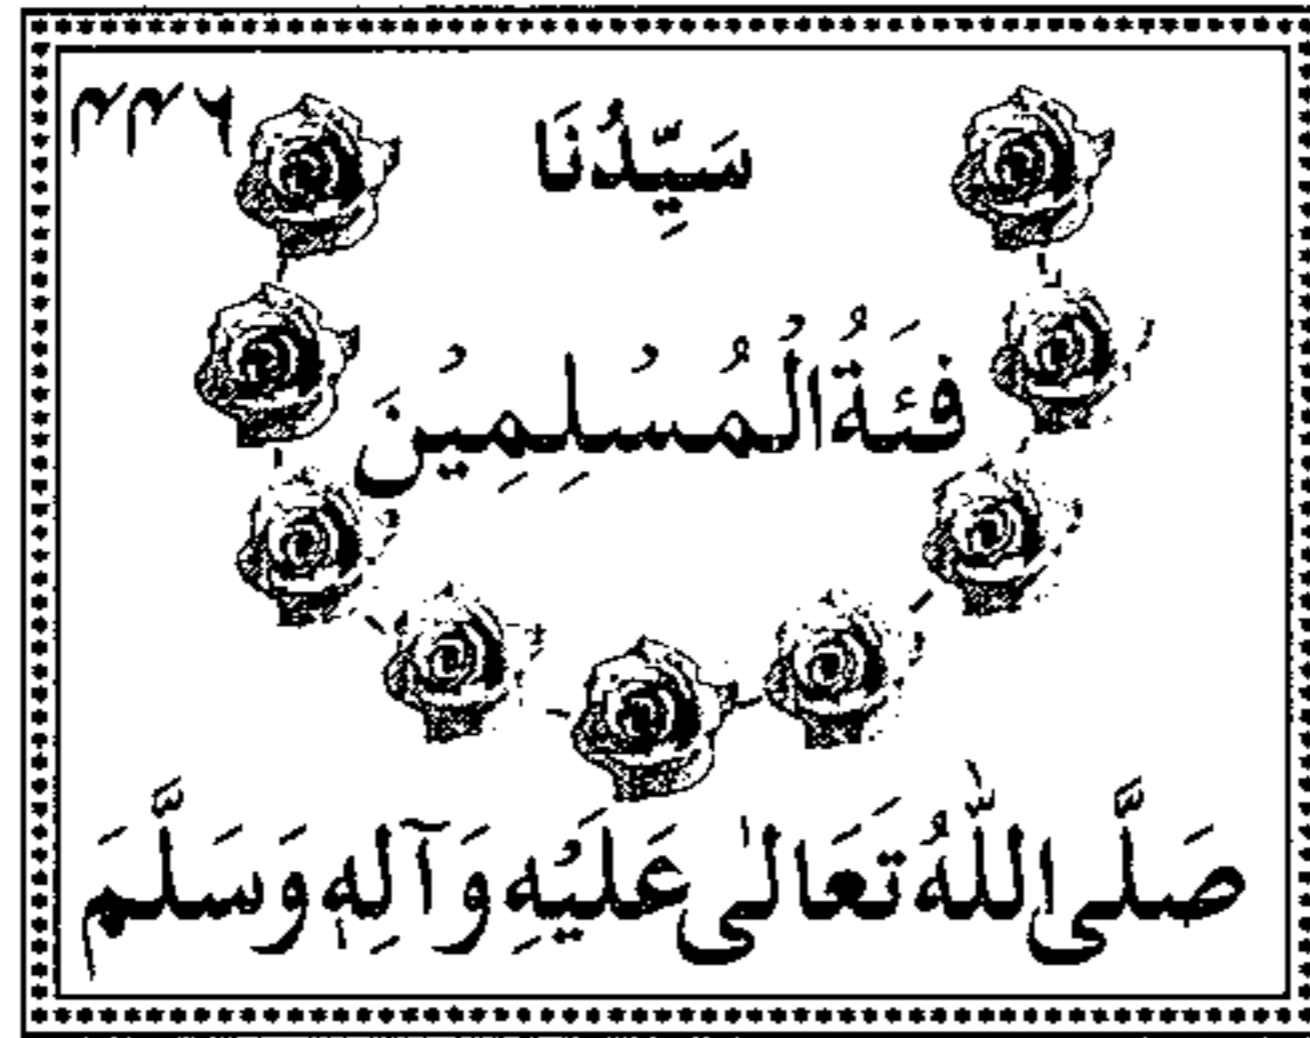 سَيِّدُنَا
فِئَةُ الْمُسْلِمِيْنَ
صَلَّى اللّٰهُ تَعَالٰى عَلَيْهِ وَآلِهٖ وَسَلَّمَ